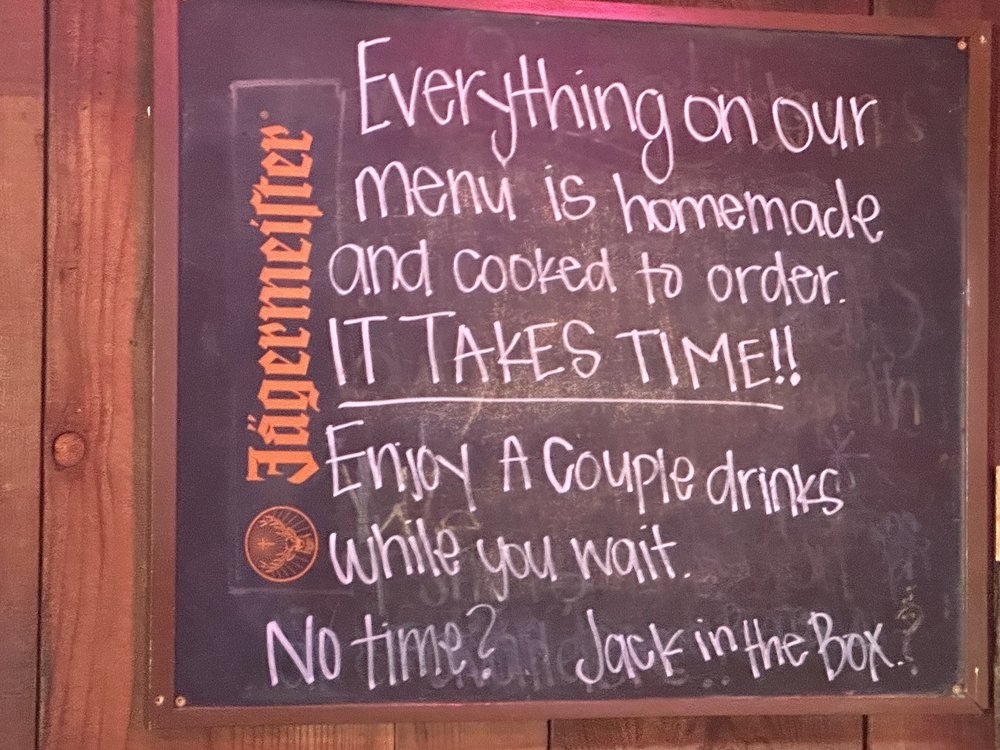 Jägermeiſter
Everything on our
menu is homemade
and cooked to order.
IT TAKES TIME!!
Enjoy A Couple drinks
while you wait.
No time? Jack in the Box.